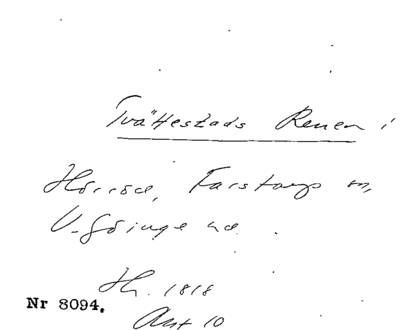 Tvättestads Renen i
Hörröd, Farstorp sn,
V. Göinge hd.
Hh. 1818
Akt 10
Nr 8094.